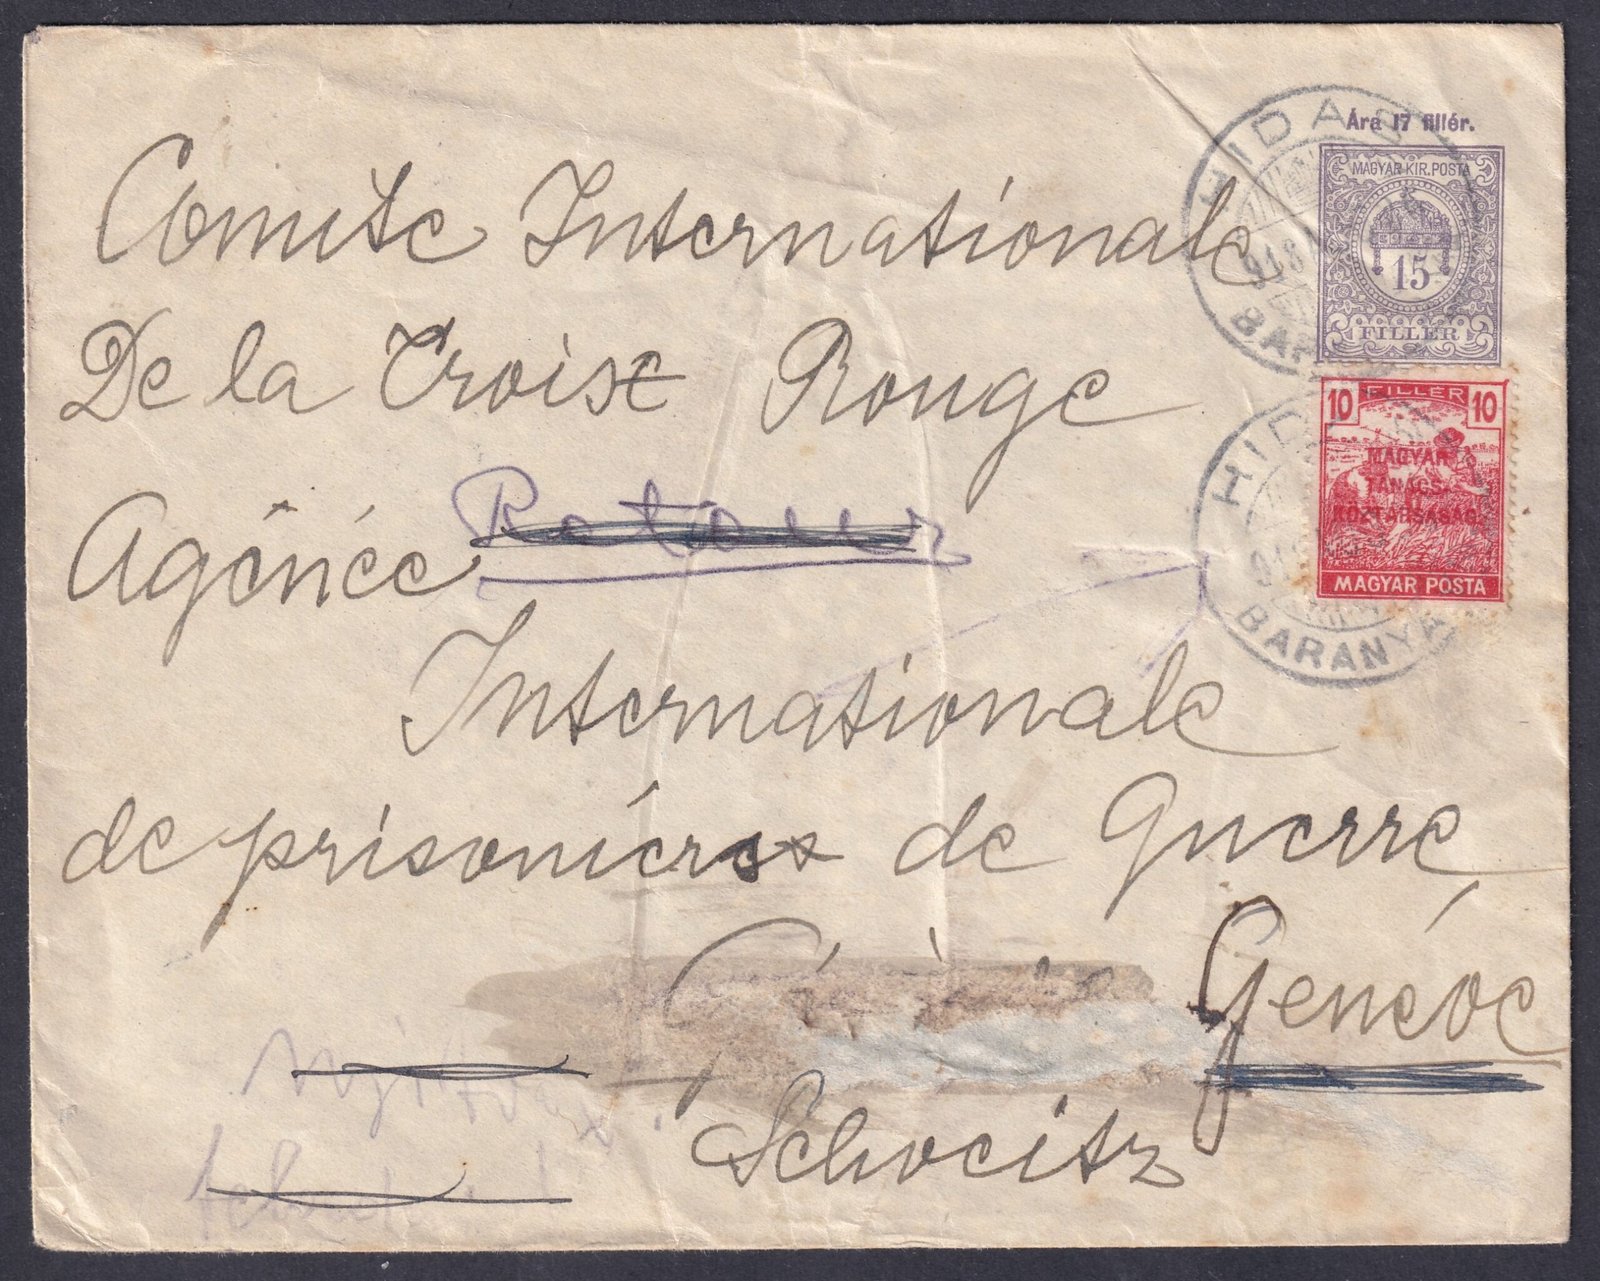 Ára 17 fillér.
MAGYAR KIR. POSTA
15
FILLÉR
HIDAS
BARANYA
Comite Internationale
De la Croix Rouge
Agênce Retour
Internationale
de prisonieres de guerre
Genève
Schveitz
10 FILLÉR 10
MAGYAR
TANÁCS-
KÖZTÁRSASÁG
MAGYAR POSTA
HIDAS
BARANYA